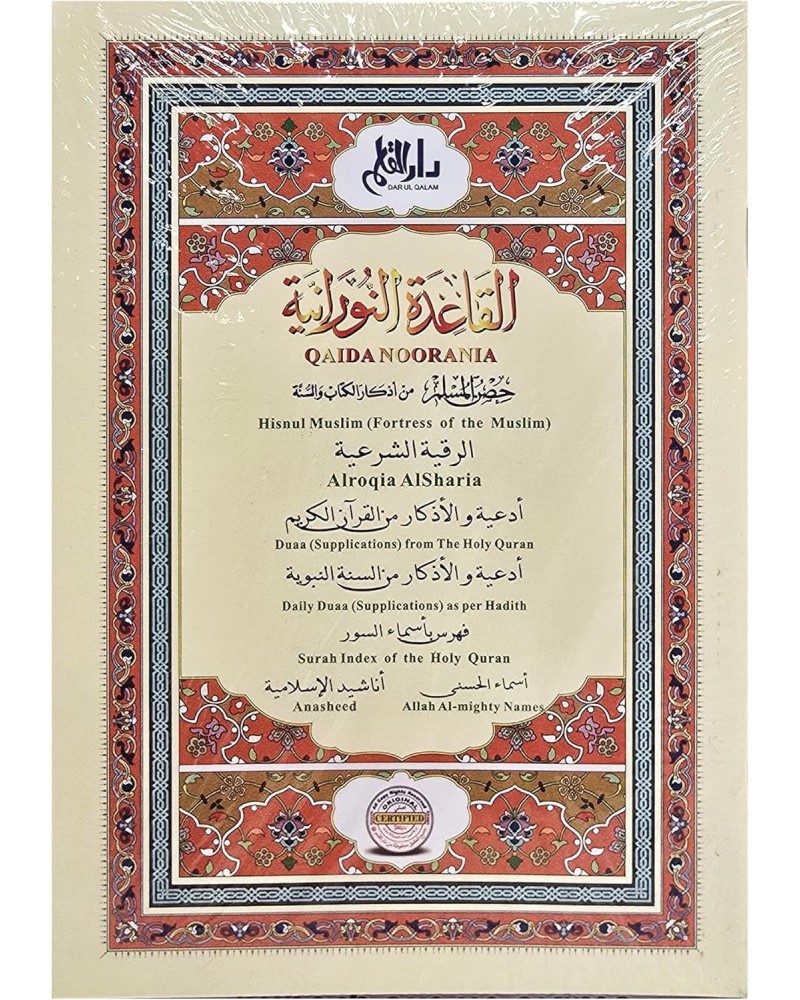 دار القلم
DAR UL QALAM
القَاعِدَة النُّورَانِيَّة
QAIDA NOORANIA
حِصْنُ المُسْلِمِ مِنْ أَذْكَارِ الكِتَابِ وَالسُّنَّة
Hisnul Muslim (Fortress of the Muslim)
الرقية الشرعية
Alroqia AlSharia
أدعية والأذكار من القرآن الكريم
Duaa (Supplications) from The Holy Quran
أدعية والأذكار من السنة النبوية
Daily Duaa (Supplications) as per Hadith
فهرس بأسماء السور
Surah Index of the Holy Quran
أناشيد الإسلامية أسماء الحسنى
Anasheed Allah Al-mighty Names
All Copy Rights Reserved
ORIGINAL
أصلي
CERTIFIED